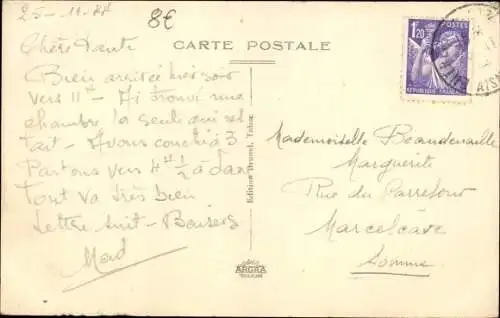 8€
CARTE POSTALE
Chère Tante
Bien arrivée hier soir
vers 11ʰ - Ai trouvé une
chambre la seule qui
- Avons couché à 3
Partons vers 4ʰ ½ à Dax
Tout va très bien
Lettre suit - Baisers
Mad
Edition Brunel, Tabac
ARGRA
1,20
POSTES
REPUBLIQUE FRANÇAISE
Mademoiselle
Marguerite
Rue du Carrefour
Marcelcave
Somme